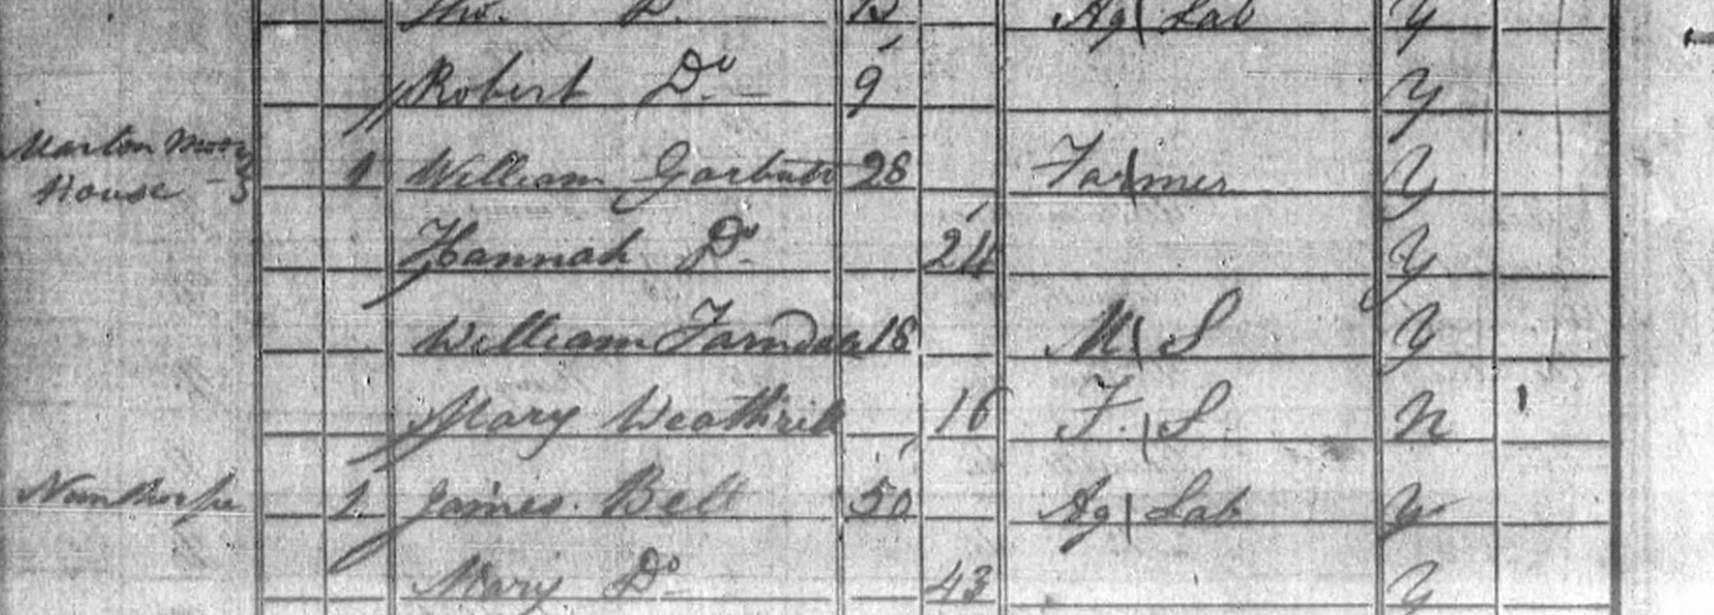 Tho. D. 15 Ag Lab Y
Robert Do 9 Y
Marton Moor
House 1 William Garbutt 28 Farmer Y
Hannah Do 24 Y
William Farndale 18 M S Y
Mary Weathrill 16 F. S. N
Nunthorpe 1 James Bell 50 Ag Lab Y
Mary Do 43 Y